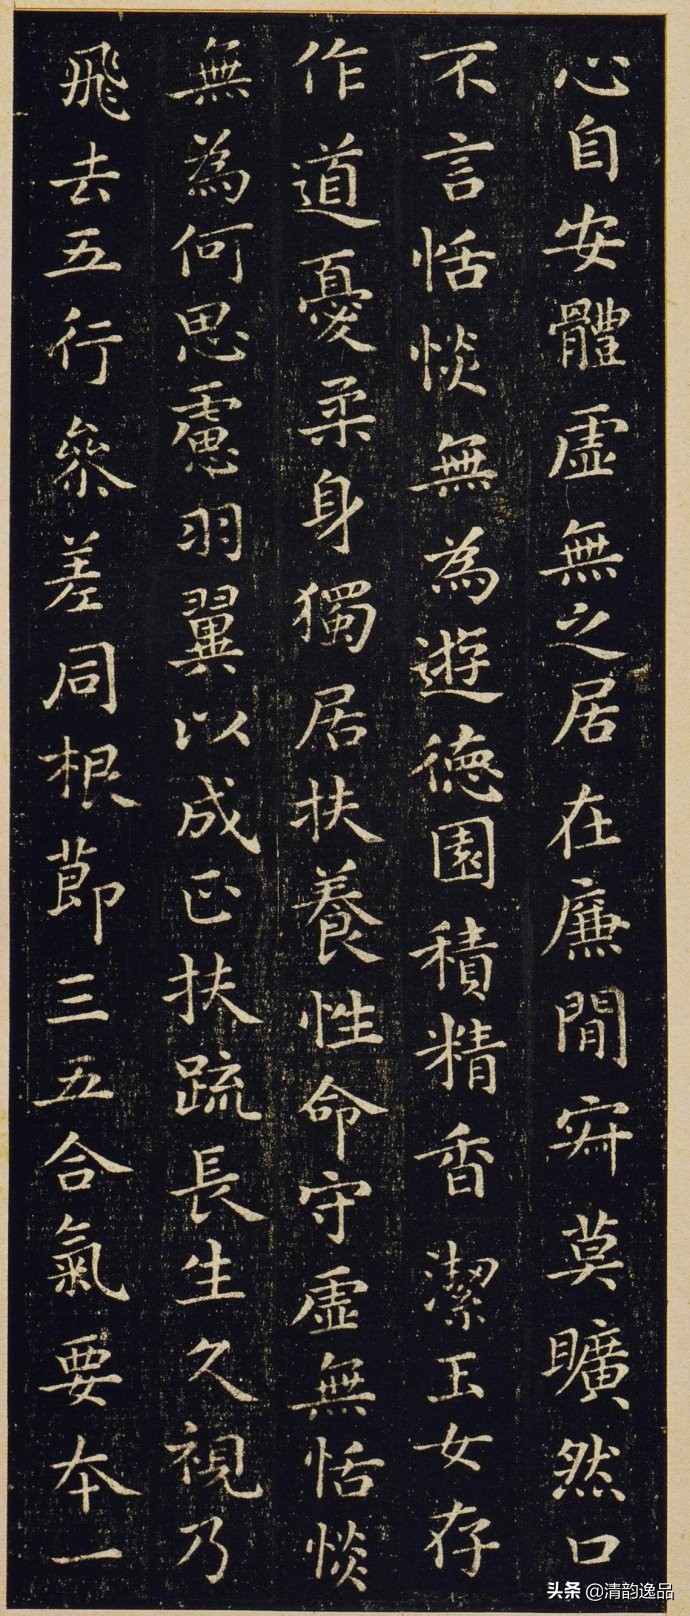 心自安體虛無之居在廉間𡧯莫曠然口
不言恬惔無為遊德園積精香潔玉女存
作道憂柔身獨居扶養性命守虛無恬惔
無為何思慮羽翼以成正扶疏長生久視乃
飛去五行參差同根節三五合氣要本一
头条@清韵逸品